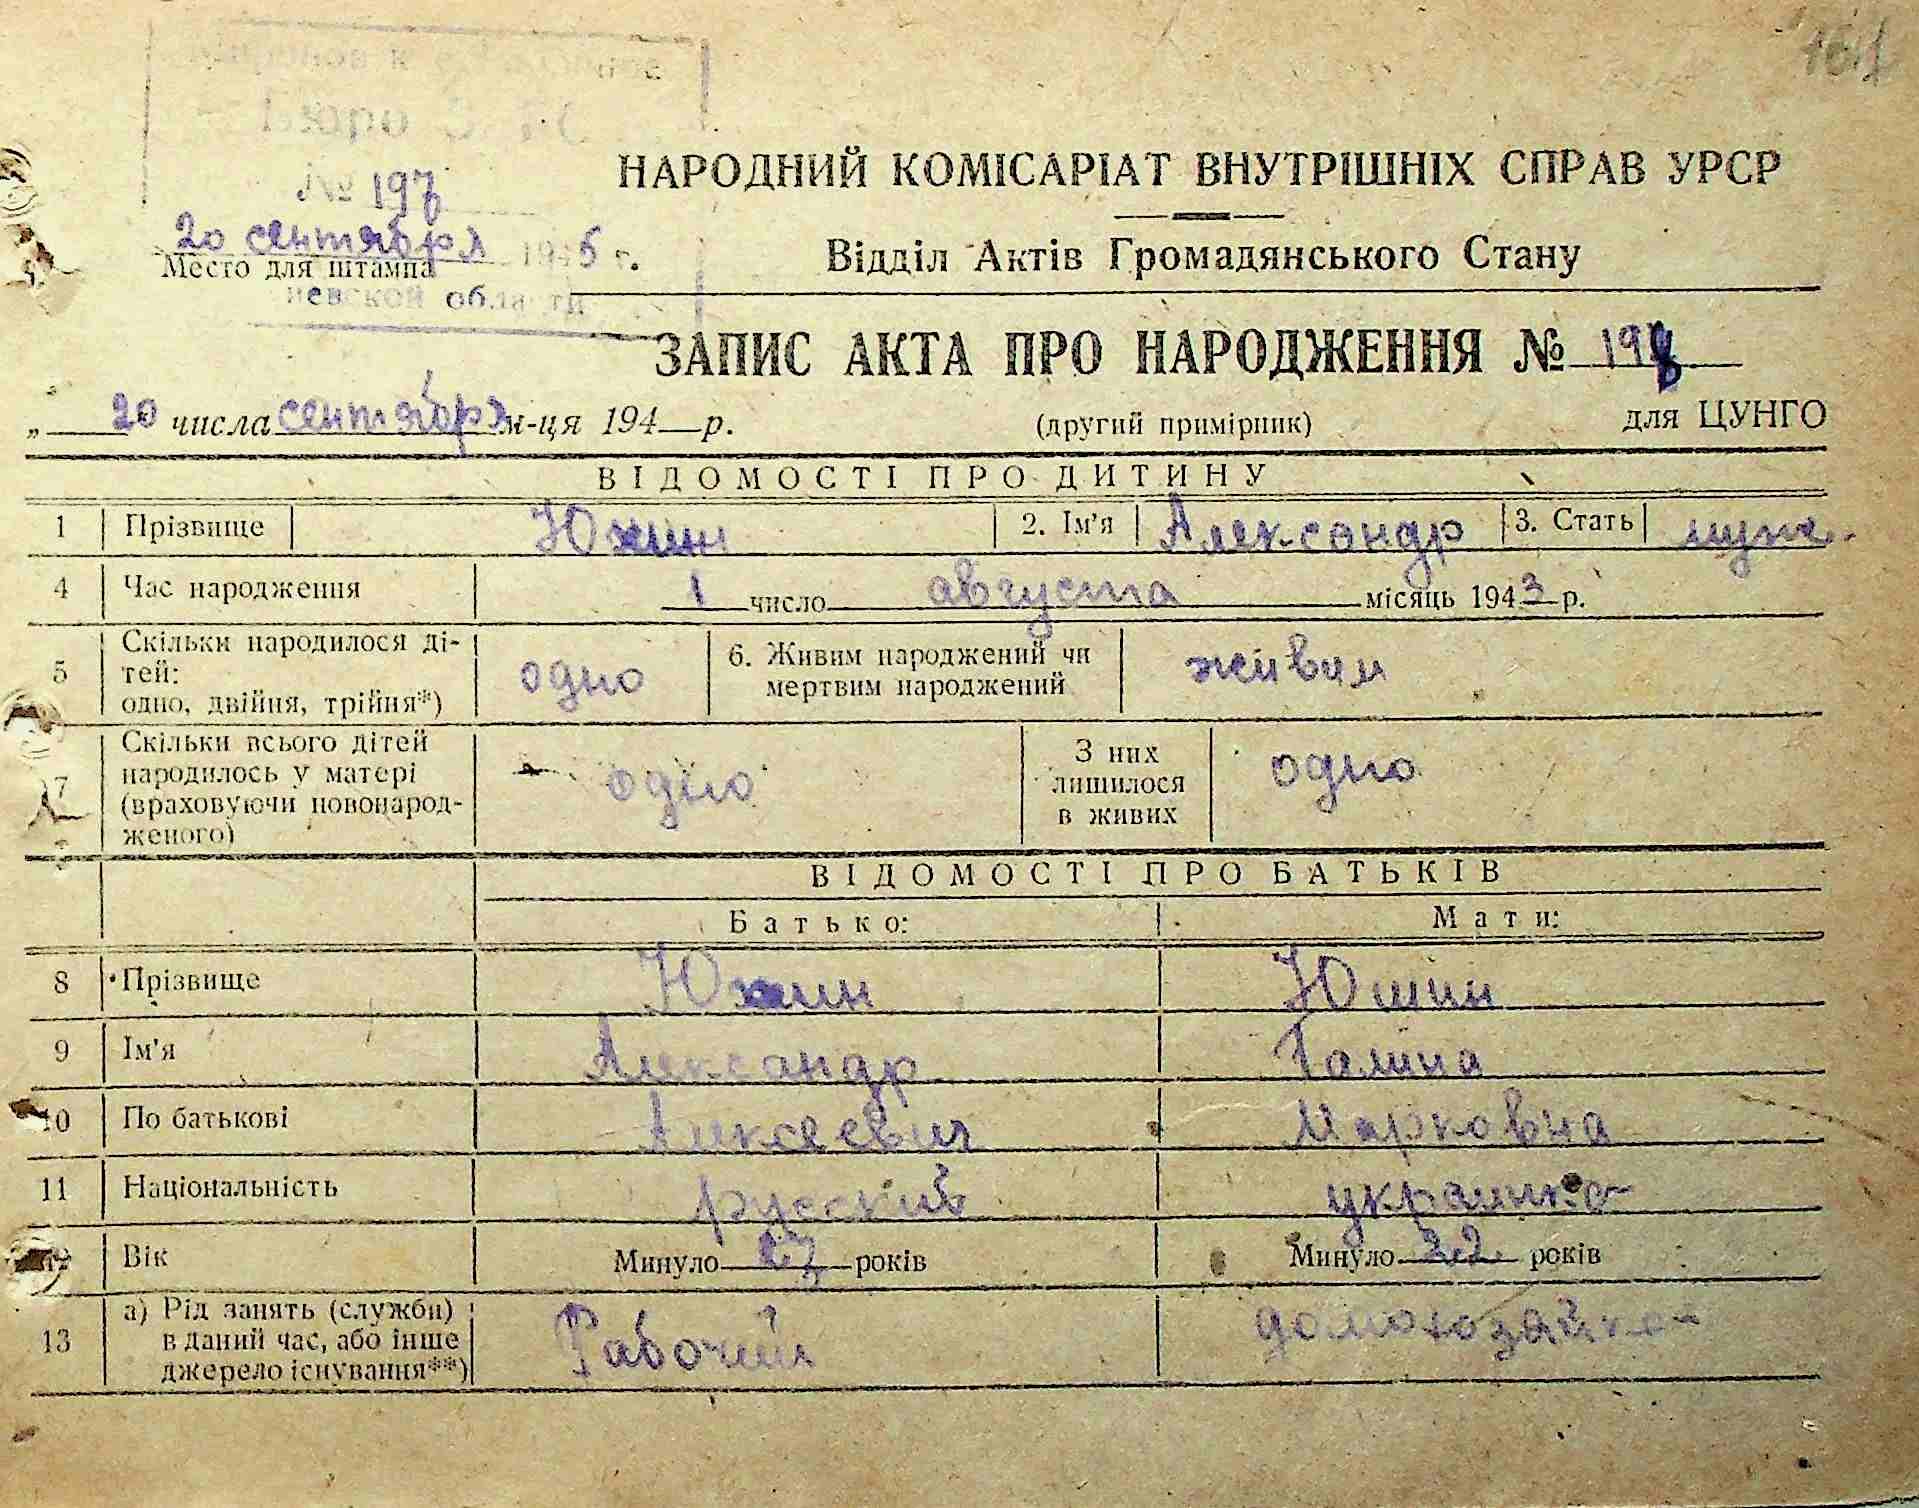 Бюро
№ 197
20 сентября 1945 г.
Место для штампа
невской области
НАРОДНИЙ КОМІСАРІАТ ВНУТРІШНІХ СПРАВ УРСР
Відділ Актів Громадянського Стану
ЗАПИС АКТА ПРО НАРОДЖЕННЯ №
„ 20 числа сентября м-ця 194 р. (другий примірник) для ЦУНГО
ВІДОМОСТІ ПРО ДИТИНУ
1 Прізвище Южин 2. Ім'я Александр 3. Стать муж.
4 Час народження 1 число августа місяць 1943 р.
5 Скільки народилося ді-
тей:
одно, двійня, трійня*) одно 6. Живим народжений чи
мертвим народжений живым
7 Скільки всього дітей
народилось у матері
(враховуючи новонарод-
женого) одно З них
лишилося
в живих одно
ВІДОМОСТІ ПРО БАТЬКІВ
Батько: Мати:
8 Прізвище Южин Юшин
9 Ім'я Александр Галина
10 По батькові Алексеевич Марковна
11 Національність русский украинка
12 Вік Минуло 27 років Минуло 22 років
13 а) Рід занять (служби)
в даний час, або інше
джерело існування**) Рабочий домохозяйка